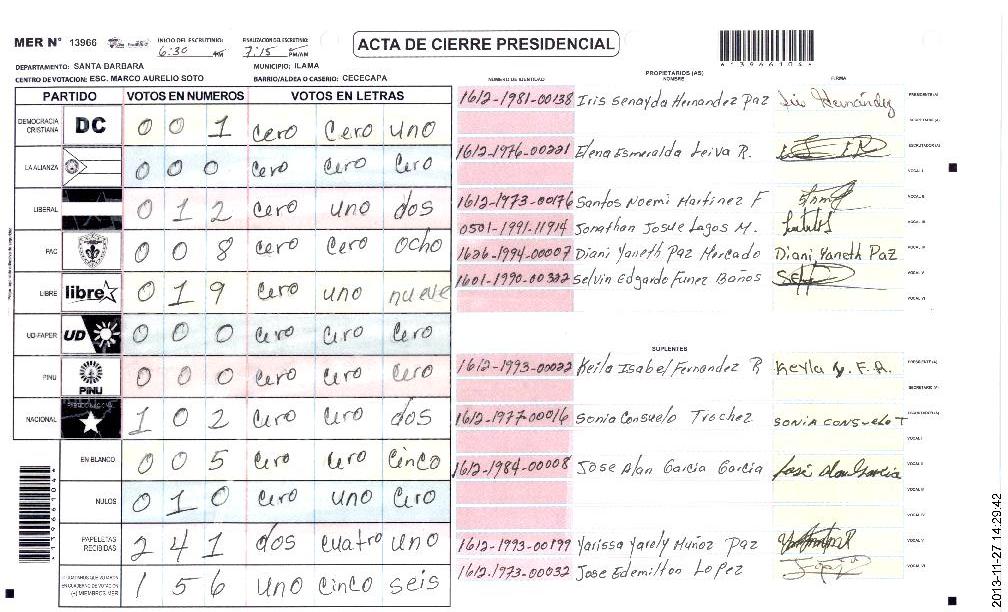 MER N° 13966 INICIO DEL ESCRUTINIO: 6:30 AM FINALIZACION DEL ESCRUTINIO: 7:15 PM/AM
ACTA DE CIERRE PRESIDENCIAL
DEPARTAMENTO: SANTA BARBARA MUNICIPIO: ILAMA
CENTRO DE VOTACION: ESC. MARCO AURELIO SOTO BARRIO/ALDEA O CASERIO: CECECAPA
PARTIDO VOTOS EN NUMEROS VOTOS EN LETRAS
DEMOCRACIA CRISTIANA DC 0 0 1 cero cero uno
LA ALIANZA 0 0 0 cero cero cero
LIBERAL 0 1 2 cero uno dos
PAC 0 0 8 cero cero ocho
LIBRE libre 0 1 9 cero uno nueve
UD-FAPER UD 0 0 0 cero cero cero
PINU PINU 0 0 0 cero cero cero
NACIONAL 1 0 2 cero cero dos
EN BLANCO 0 0 5 cero cero cinco
NULOS 0 1 0 cero uno cero
PAPELETAS RECIBIDAS 2 4 1 dos cuatro uno
CIUDADANOS QUE VOTARON EN CUADERNO DE VOTACION (+) MIEMBROS MER 1 5 6 uno cinco seis
NUMERO DE IDENTIDAD PROPIETARIOS (AS) NOMBRE FIRMA
1612-1981-00138 Iris Senayda Hernandez Paz Iris Hernández PRESIDENTE (A)
SECRETARIO (A)
1612-1976-00221 Elena Esmeralda Leiva R. ESCRUTADOR (A)
VOCAL I
1612-1973-00176 Santos Noemi Martinez F VOCAL II
0501-1991-11914 Jonathan Josue Lagos M. VOCAL III
1626-1994-00007 Diani Yaneth Paz Mercado Diani Yaneth Paz VOCAL IV
1601-1990-00322 Selvin Edgardo Funez Baños VOCAL V
VOCAL VI
SUPLENTES
1612-1993-00022 Keila Isabel Fernandez R Keyla Y. F. R. PRESIDENTE (A)
SECRETARIO (A)
1612-1977-00016 Sonia Consuelo Trochez SONIA CONSUELO T ESCRUTADOR (A)
VOCAL I
1612-1984-00008 Jose Alan Garcia Garcia José Alan Garcia VOCAL II
VOCAL III
VOCAL IV
1612-1993-00199 Yarissa Yarely Muñoz Paz VOCAL V
1612-1973-00032 Jose Edemilton Lopez VOCAL VI
2013-11-27 14:29:42